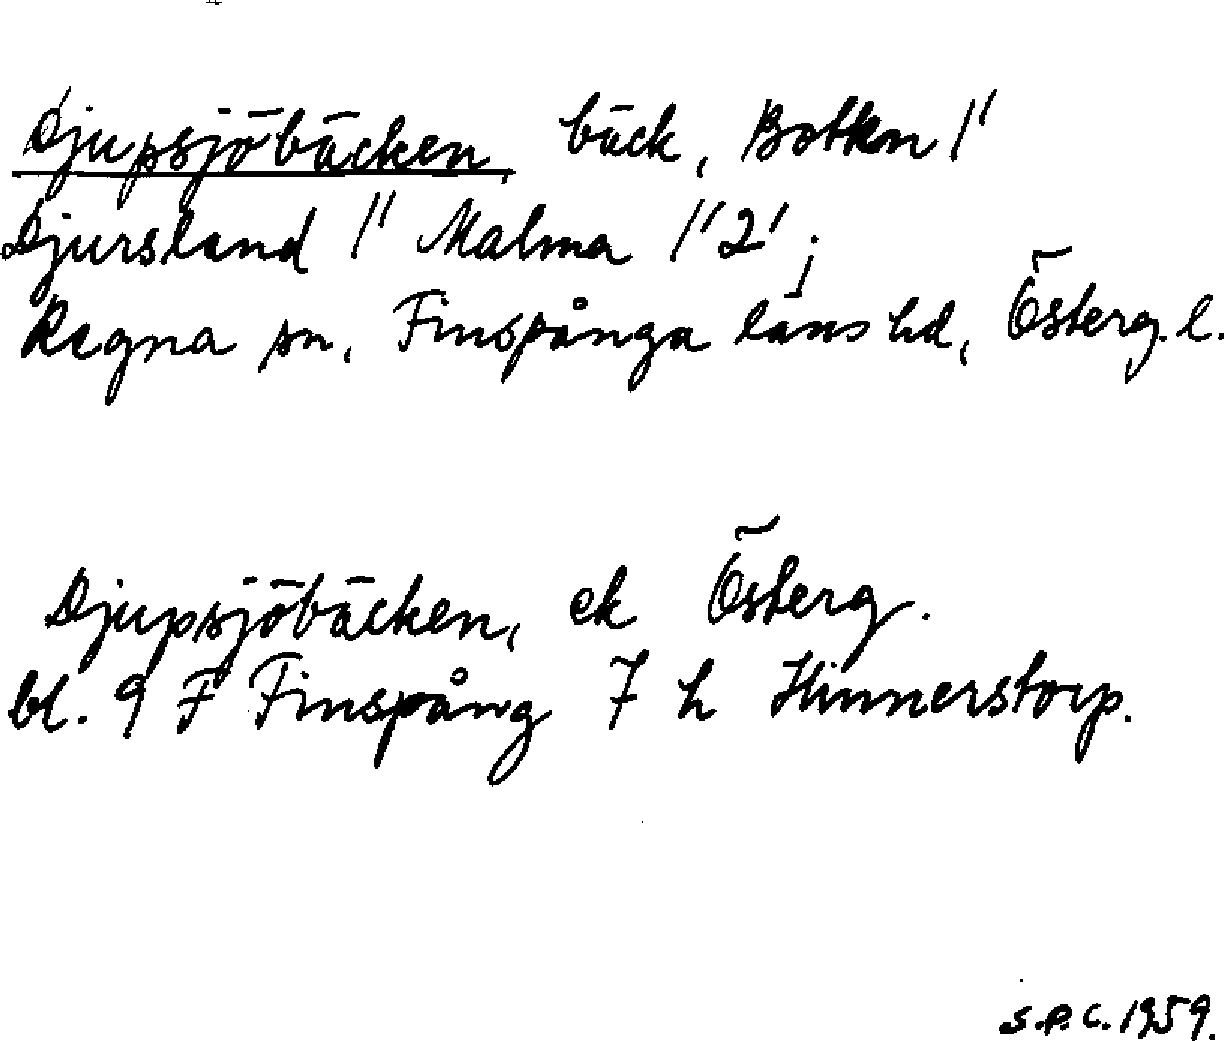 Djupsjöbäcken, bäck, Botten 1/1
Djursland 1/1 Malma 1/1 2/1 ;
Regna sn, Finspånga läns hd, Österg. l.
Djupsjöbäcken, ek Österg.
bl. 9 F Finspång 7 h Hinnerstorp.
S.P.C. 1959.